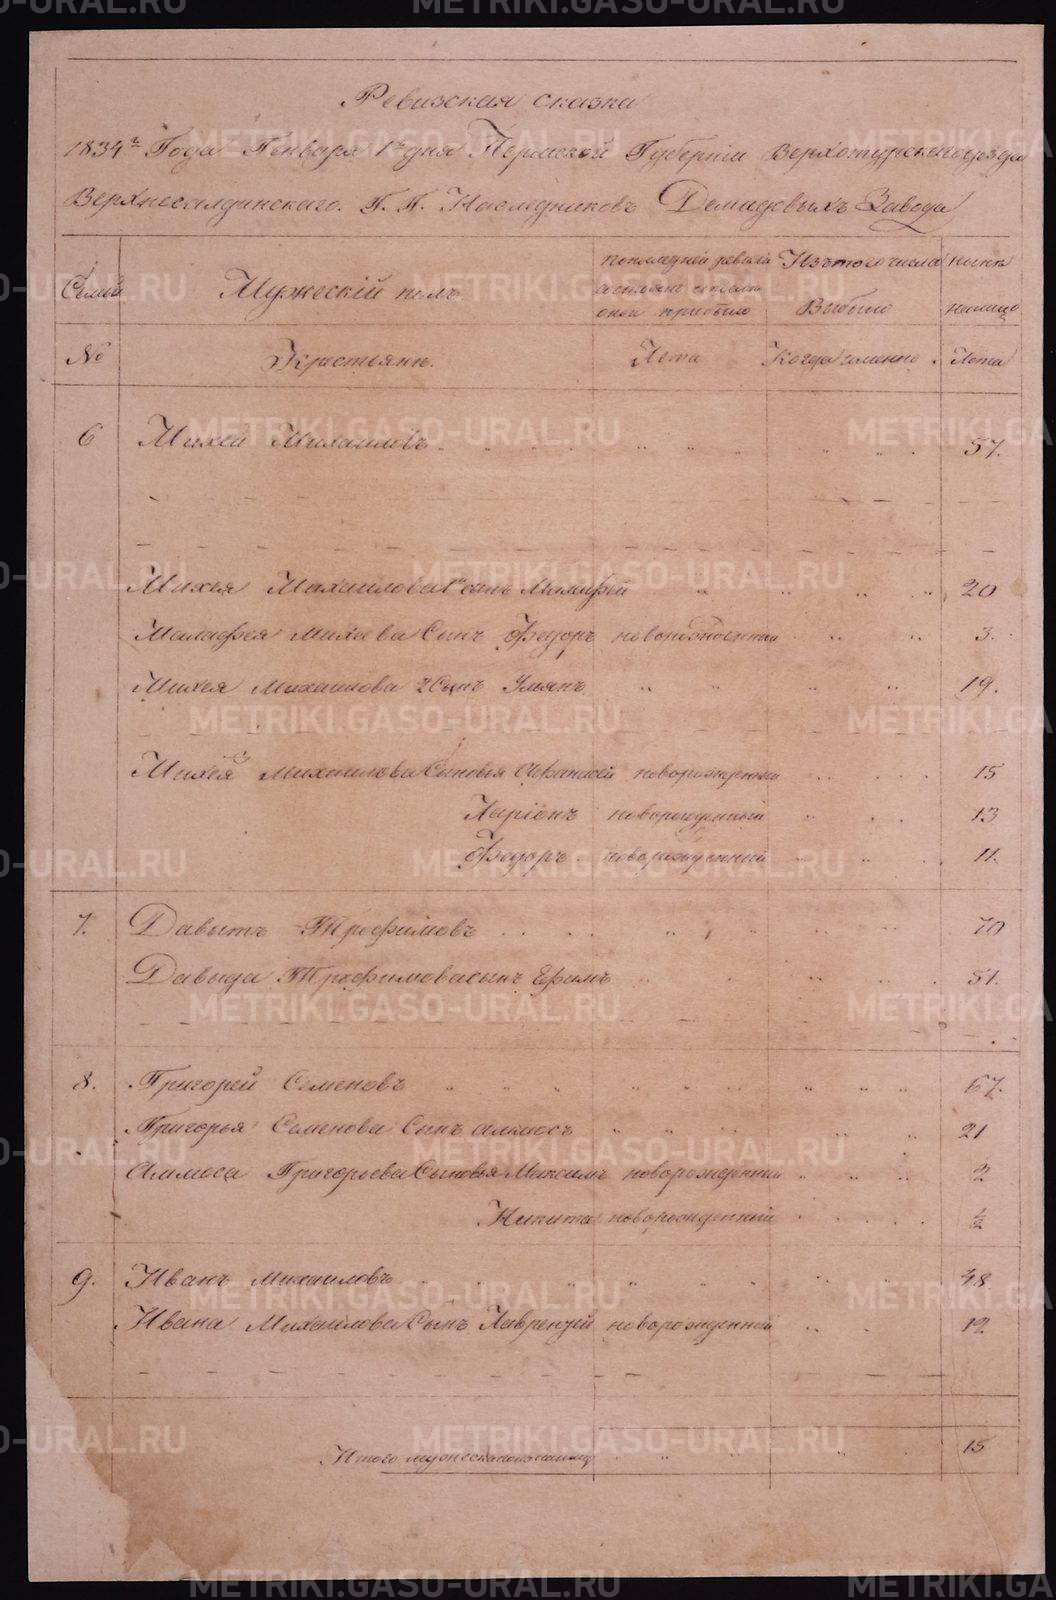 Ревизская сказка
1834го Года Генваря 1го дня Пермской Губернiи Верхотурскаго уезда
Верхнесалдинскаго Г. Г. Наследниковъ Демидовыхъ Завода
Семей Мужескiй полъ По последней ревизiи Изъ того числа Ныне
состояло и после
оной прибыло Выбыло налицо
№ Крестьяне. Лета Когда именно Лета
6 Михей Михаиловъ 57.
Михея Михаилова 1й сынъ Малафей 20
Малафея Михеева Сынъ Федоръ новорожденный 3.
Михея Михаилова 2 Сынъ 19.
Михея Михаилова Сыновья новорожденный 15
Ларiонъ новорожденный 13
Федоръ новорожденный 11.
7. Давытъ Трофимовъ 70
Давыда Трофимова сынъ Ефимъ 51.
8. Григорей Семеновъ 67.
Григорья Семенова Сынъ 21
Григорьева Сыновья Максимъ новорожденный 2
Никита новорожденный ½
9. Иванъ Михаиловъ 48
Ивана Михаилова Сынъ Лаврентей новорожденный 12
Итого мужеска пола налицо 15
METRIKI.GASO-URAL.RU